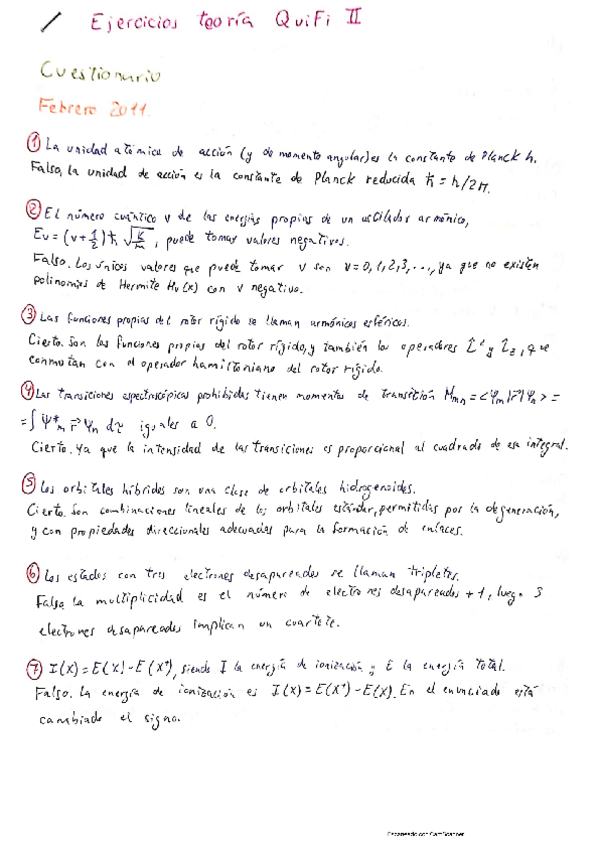 Ejercicios teoría QuiFi II
Cuestionario
Febrero 2011.
① La unidad atómica de acción (y de momento angular) es la constante de Planck h.
Falso, la unidad de acción es la constante de Planck reducida ħ = h/2π.
② El número cuántico v de las energías propias de un oscilador armónico,
Ev = (v + 1/2) ħ √(k/m), puede tomar valores negativos.
Falso. Los únicos valores que puede tomar v son v = 0, 1, 2, 3, ..., ya que no existen
polinomios de Hermite Hv(x) con v negativo.
③ Las funciones propias del rotor rígido se llaman armónicos esféricos.
Cierto. Son las funciones propias del rotor rígido, y también los operadores L̂² y L̂z, que
conmutan con el operador hamiltoniano del rotor rígido.
④ Las transiciones espectroscópicas prohibidas tienen momentos de transición Mmn = <ψm|r⃗|ψn> =
= ∫ ψ*m r⃗ ψn dτ iguales a 0.
Cierto. Ya que la intensidad de las transiciones es proporcional al cuadrado de esa integral.
⑤ Los orbitales híbridos son una clase de orbitales hidrogenoides.
Cierto. Son combinaciones lineales de los orbitales estándar, permitidas por la degeneración,
y con propiedades direccionales adecuadas para la formación de enlaces.
⑥ Los estados con tres electrones desapareados se llaman tripletes.
Falso la multiplicidad es el número de electrones desapareados + 1, luego 3
electrones desapareados implican un cuartete.
⑦ I(X) = E(X) - E(X⁺), siendo I la energía de ionización y E la energía total.
Falso. La energía de ionización es I(X) = E(X⁺) - E(X). En el enunciado está
cambiado el signo.
Escaneado con CamScanner